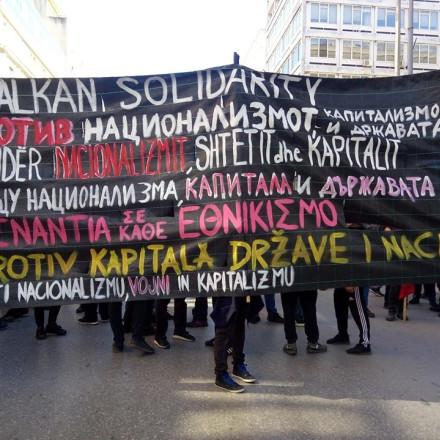 ALKAN SOLIDARITY
ПРОТИВ НАЦИОНАЛИЗМОТ, КАПИТАЛИЗМО И ДРЖАВАТА
NDËR NACIONALIZMIT, SHTETIT dhe KAPITALIT
НАЦИОНАЛИЗМА, КАПИТАЛА И ДЪРЖАВАТА
ΕΝΑΝΤΙΑ ΣΕ ΚΑΘΕ ΕΘΝΙΚΙΣΜΟ
PROTIV KAPITALA DRŽAVE I NACI
TI NACIONALIZMU, VOJNI IN KAPITALIZMU